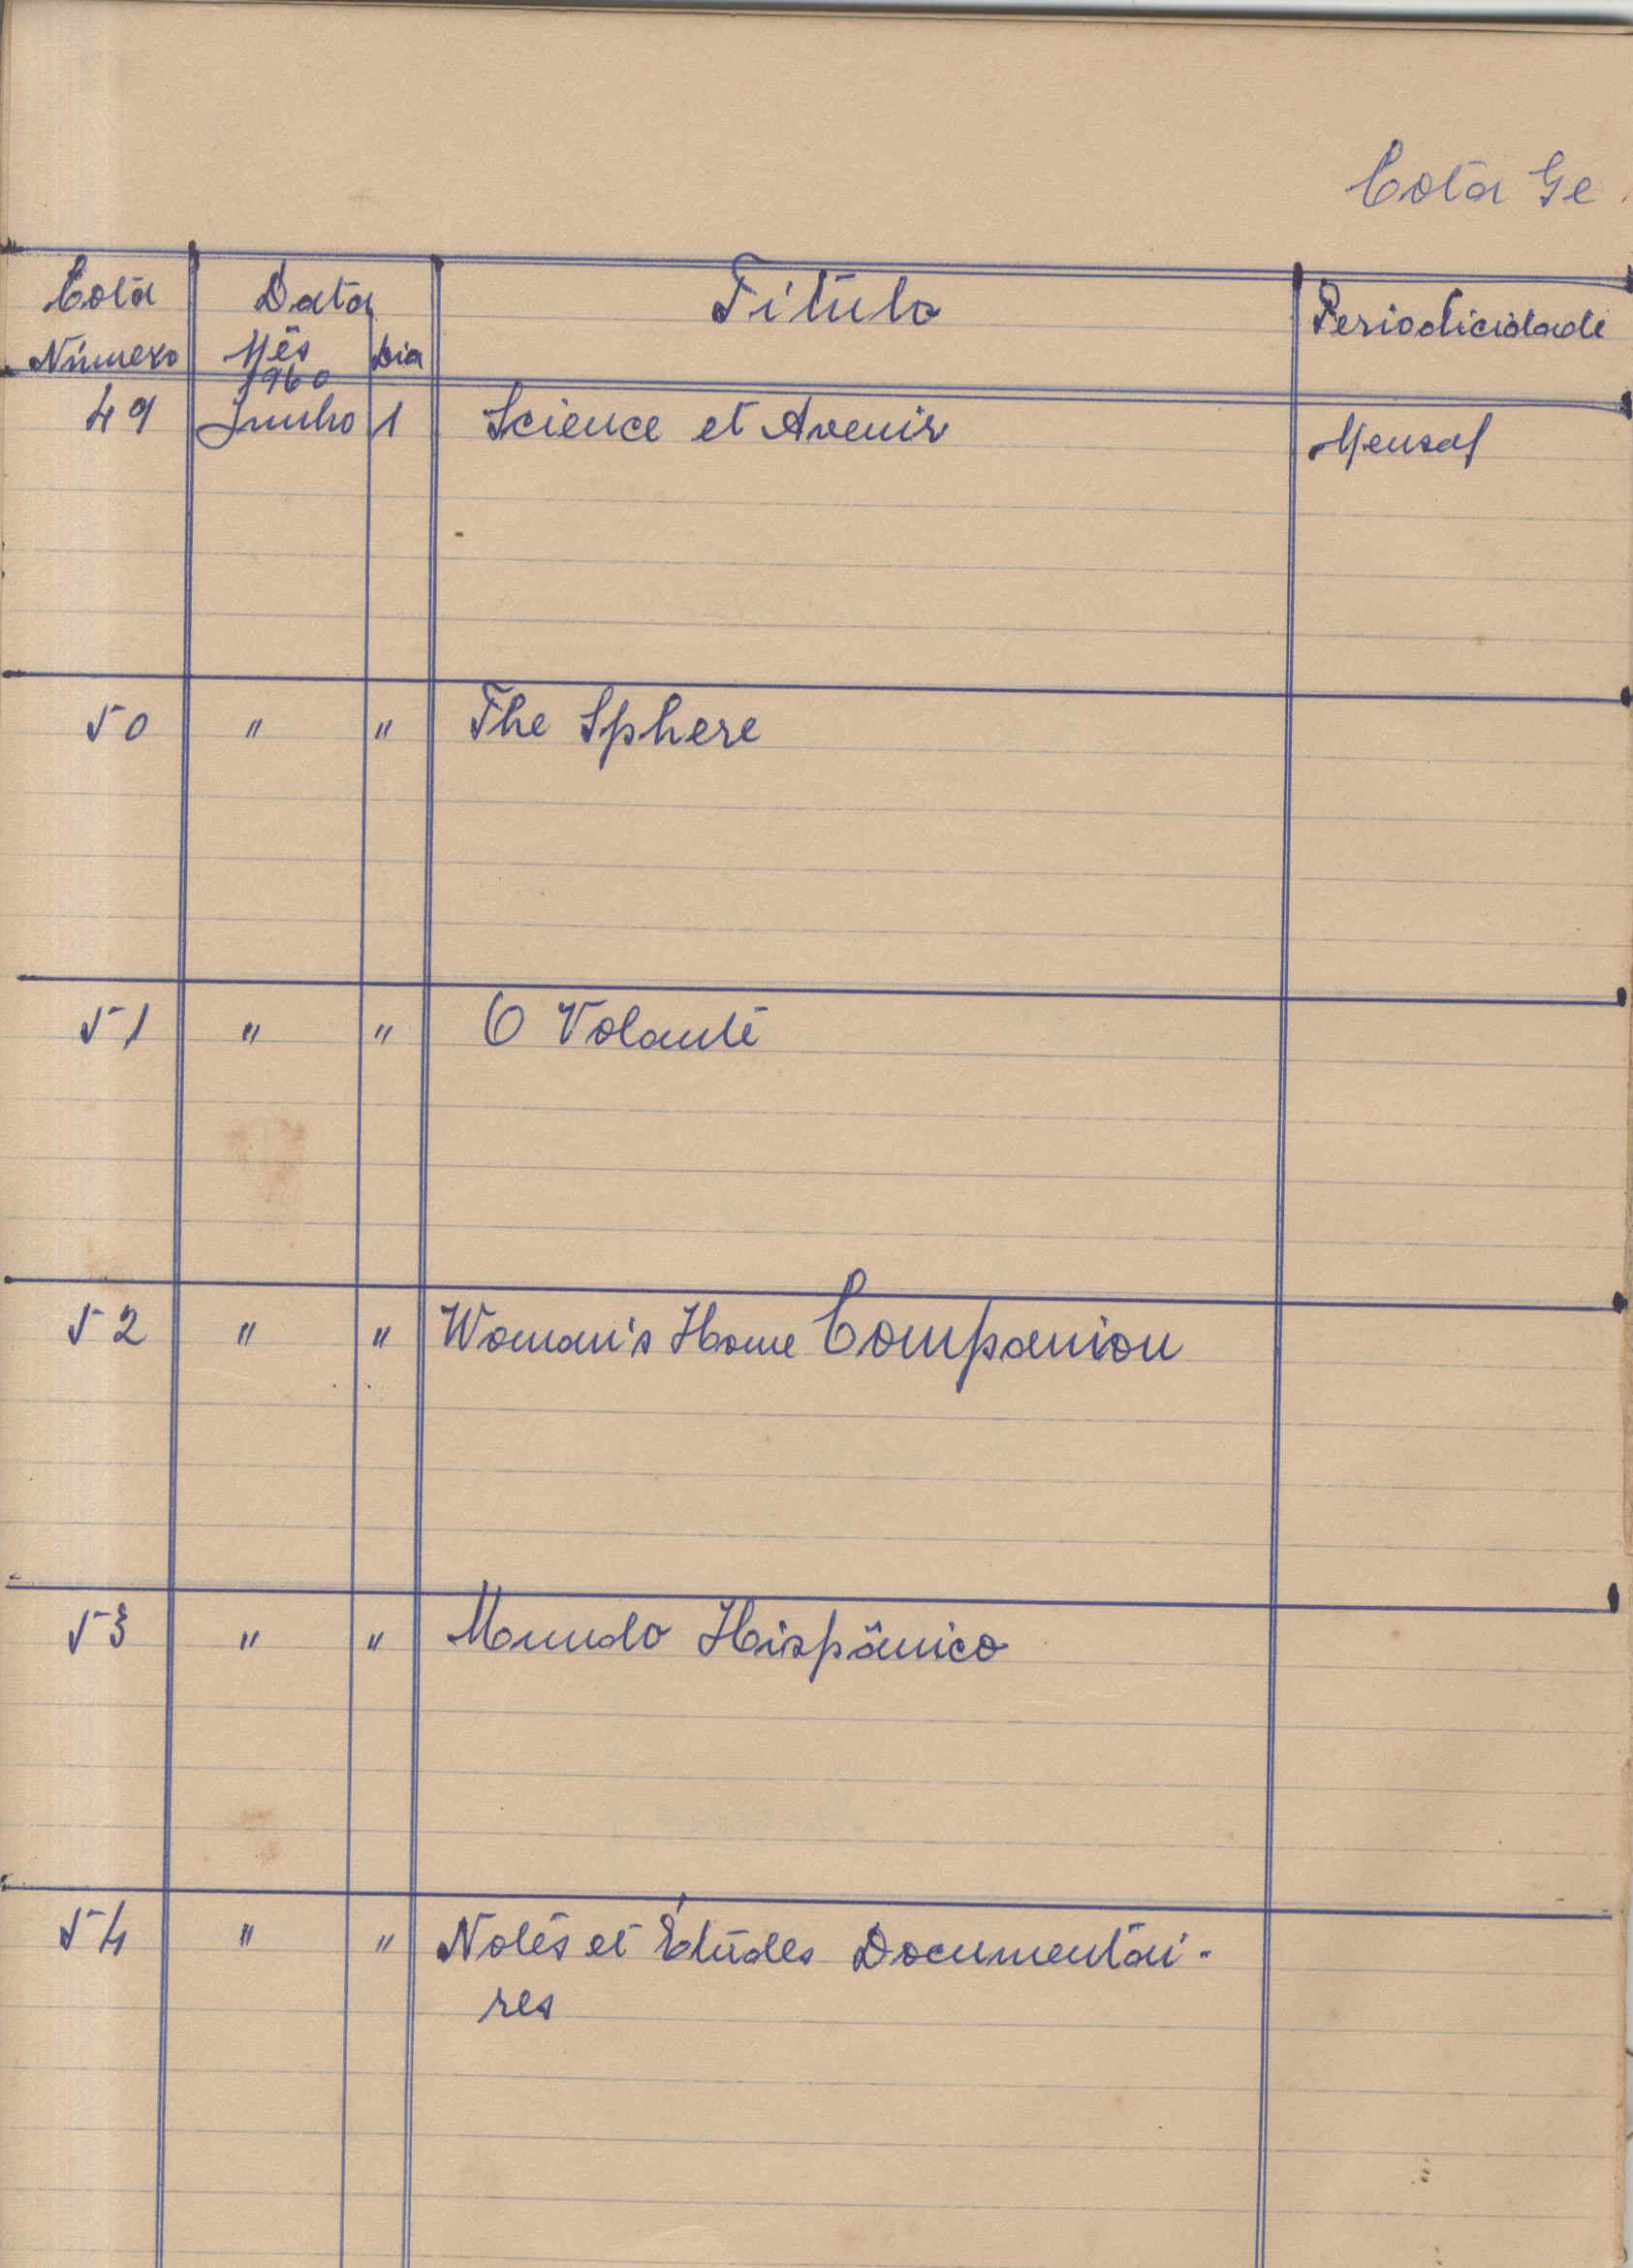 Cota Ge
Cota Data Titulo Periodicidade
Número Mês Dia
1960
49 Junho 1 Science et Avenir Mensal
50 " " The Sphere
51 " " O Volante
52 " " Woman's Home Companion
53 " " Mundo Hispânico
54 " " Notes et Études Documentai-
res